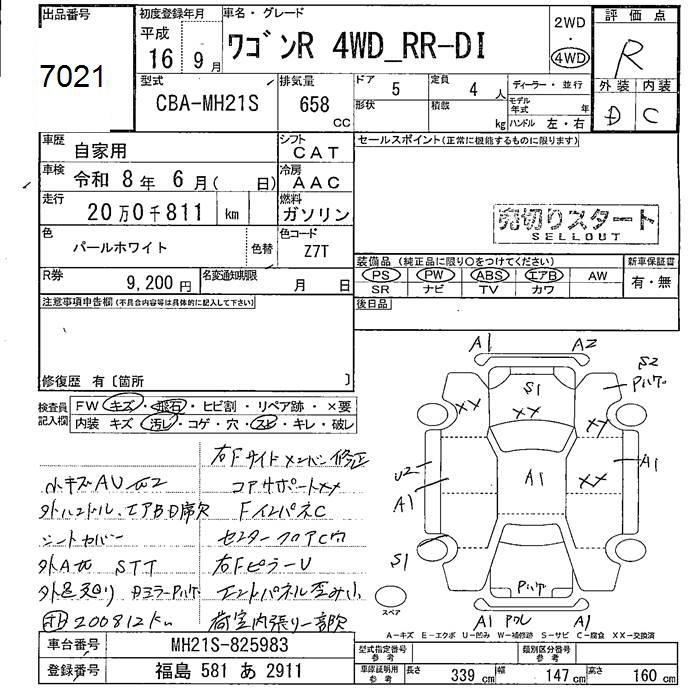 出品番号 初度登録年月 車名・グレード 2WD 評価点
平成 ・
7021 16 9月 ワゴンR 4WD_RR-DI 4WD R
型式 排気量 ドア 5 定員 4 人 ディーラー・並行 外装 内装
CBA-MH21S 658 形状 積載 モデル年式 年 D C
CC kg ハンドル 左・右
車歴 自家用 シフト CAT セールスポイント(正常に機能するものに限ります)
車検 令和 8年 6月( 日) 冷房 AAC
走行 20万0千811 km 燃料 ガソリン 売切りスタート
SELLOUT
色 パールホワイト 色替 色コード Z7T
装備品(純正品に限り○をつけてください) 新車保証書
R券 9,200円 名変通知期限 月 日 PS PW ABS エアB AW 有・無
SR ナビ TV カワ
注意事項申告欄(不具合内容等は具体的に記入して下さい) 後日品
修復歴 有〔箇所 〕
検査員 FW キズ・飛石・ヒビ割・リペア跡・×要
記入欄 内装 キズ・汚レ・コゲ・穴・スレ・キレ・破レ
A1 A2
S1 S2
XX XX XX
U2 A1 XX A1
A1
S1
スペア
A1 A1
右Fサイドメンバー修正
小キズAU
コアサポートXX
外ハンドル、エアBD席欠 FインパネC
シートカバー センターフロアC穴
外A STT 右FピラーU
外足廻り エンドパネル歪み小
200812km 荷室内張り一部欠
A-キズ E-エクボ U-凹み W-補修跡 S-サビ C-腐食 XX-交換済
車台番号 MH21S-825983 型式指定番号 参考 類別区分番号 参考
登録番号 福島 581 あ 2911 車庫証明用 参考 長さ 339 cm 幅 147 cm 高さ 160 cm